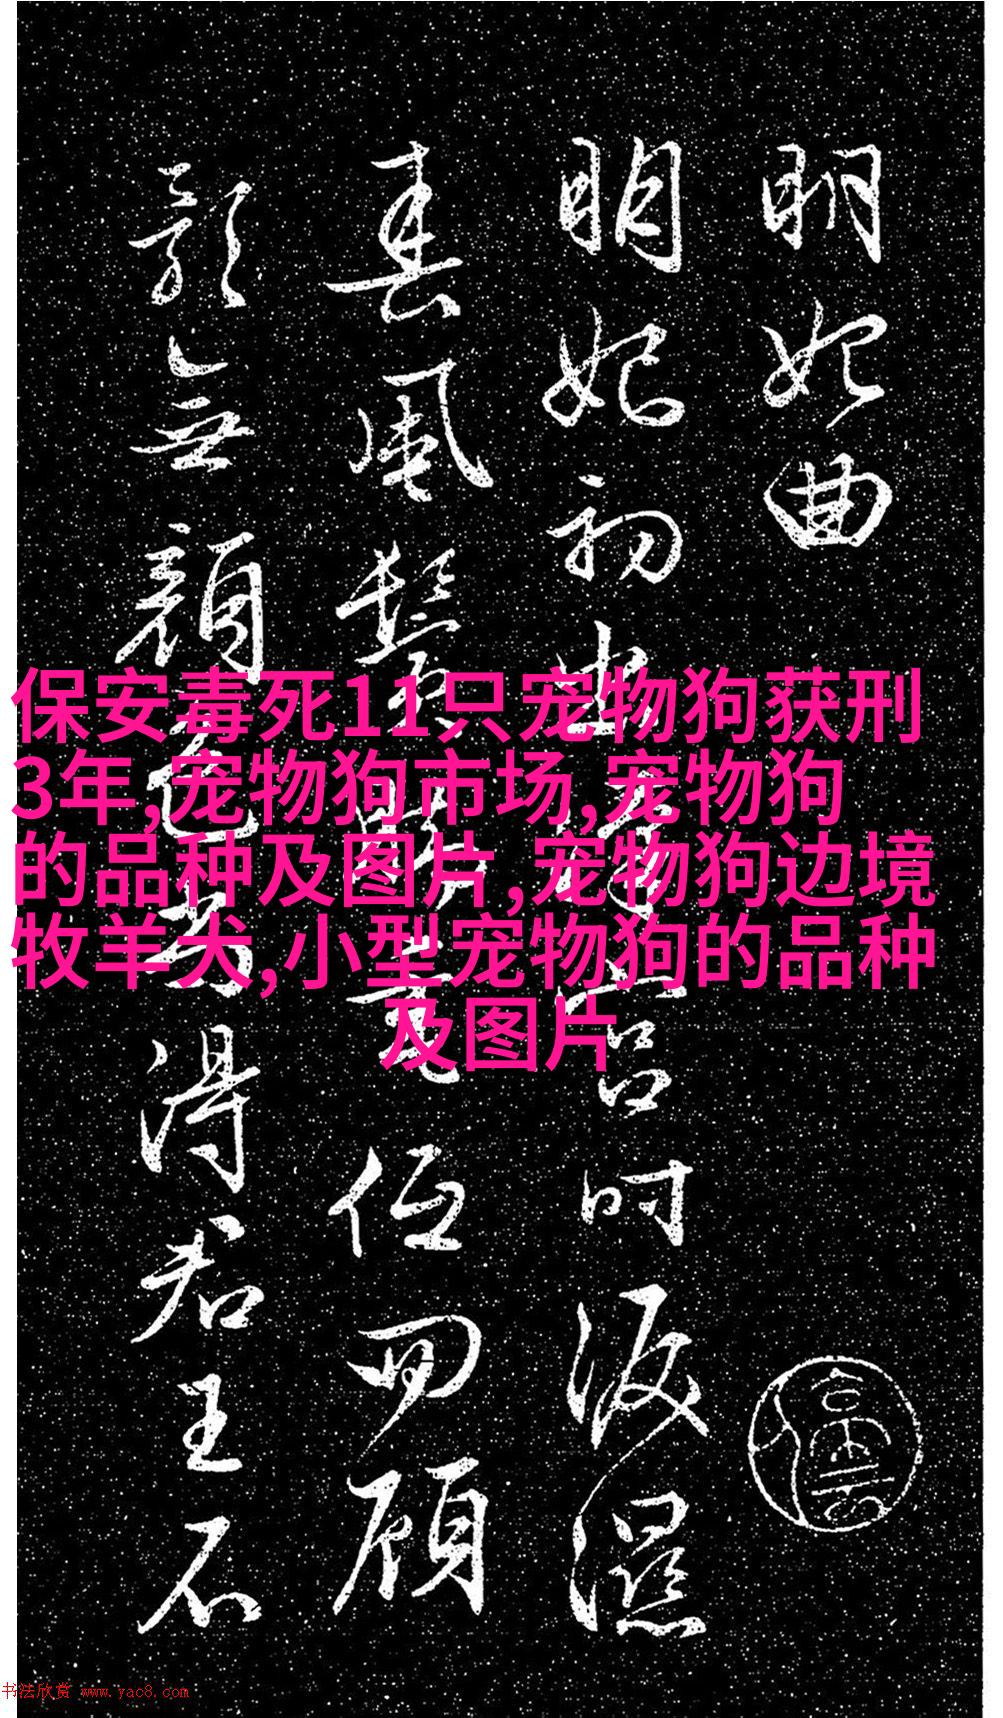 明妃曲
明妃初出漢宮時淚濕
春風鬢腳垂低回顧
影無顏色尚得君王不
保安毒死11只宠物狗获刑
3年,宠物狗市场,宠物狗
的品种及图片,宠物狗边境
牧羊犬,小型宠物狗的品种
及图片
书法欣赏 www.yac8.com